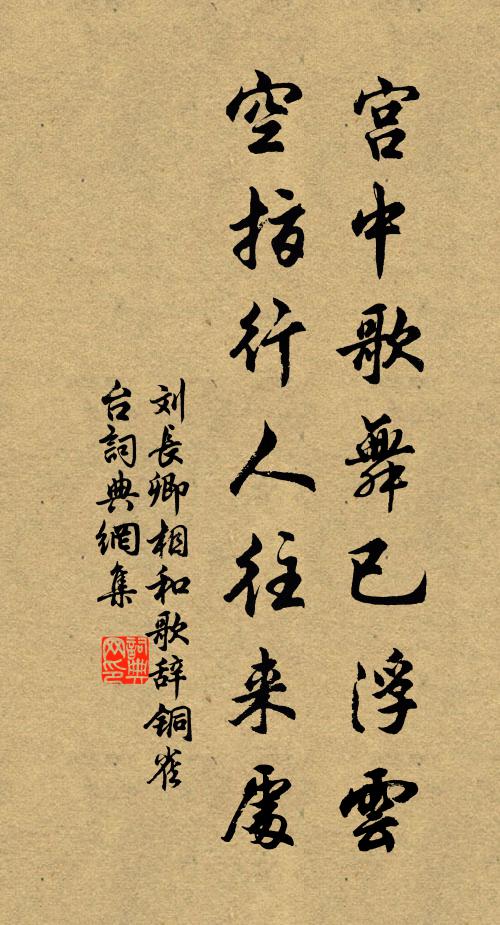 宫中歌舞已浮雲
空指行人往来處
刘長卿相和歌辞铜雀
台詞典網集
詞典
网印